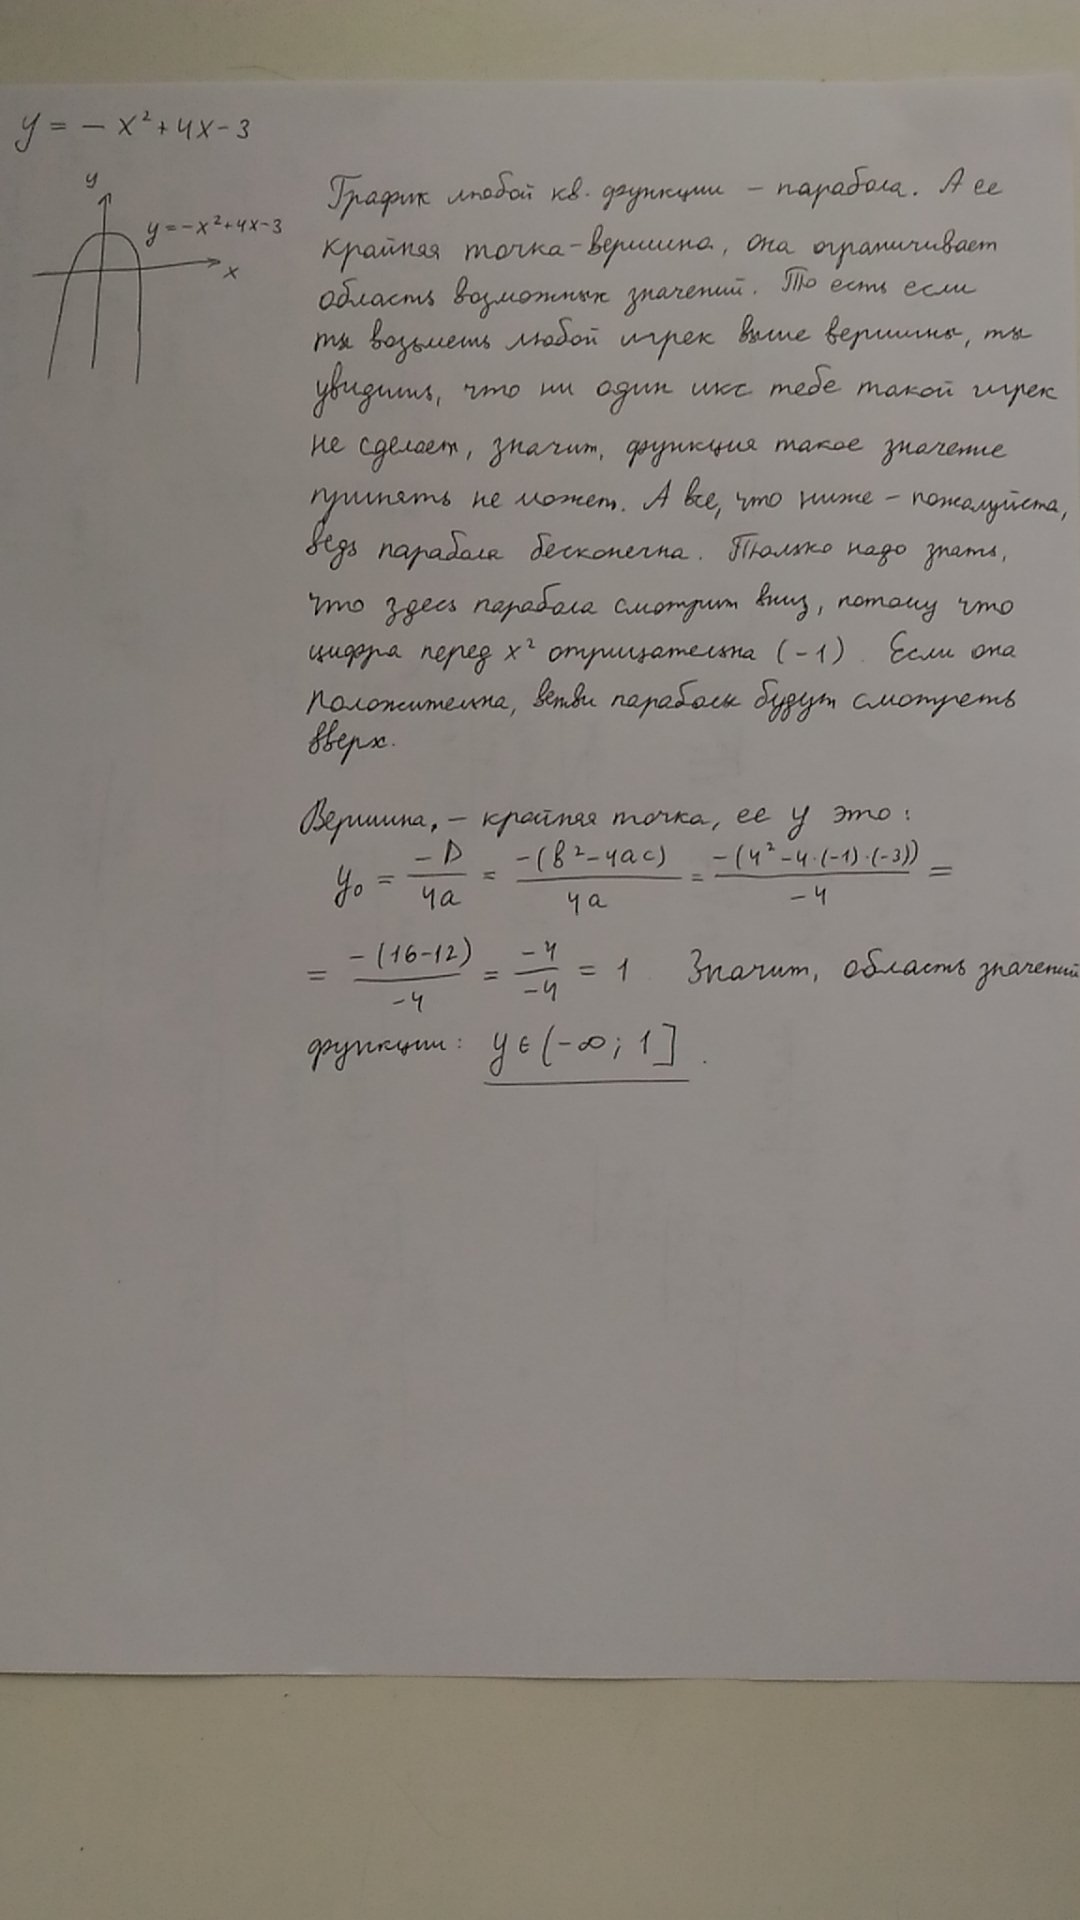 y = - x² + 4x - 3
y
y = -x² + 4x - 3
x
График любой кв. функции - парабола. А ее
крайняя точка - вершина, она ограничивает
область возможных значений. То есть если
ты возьмешь любой игрек выше вершины, ты
увидишь, что ни один икс тебе такой игрек
не сделает, значит, функция такое значение
принять не может. А все, что ниже - пожалуйста,
ведь парабола бесконечна. Только надо знать,
что здесь парабола смотрит вниз, потому что
цифра перед x² отрицательна (-1). Если она
положительна, ветви параболы будут смотреть
вверх.
Вершина, - крайняя точка, ее y это:
y₀ = -D/4a = -(b²-4ac)/4a = -(4²-4·(-1)·(-3))/-4 =
= -(16-12)/-4 = -4/-4 = 1 Значит, область значений
функции: y ∈ (-∞; 1].